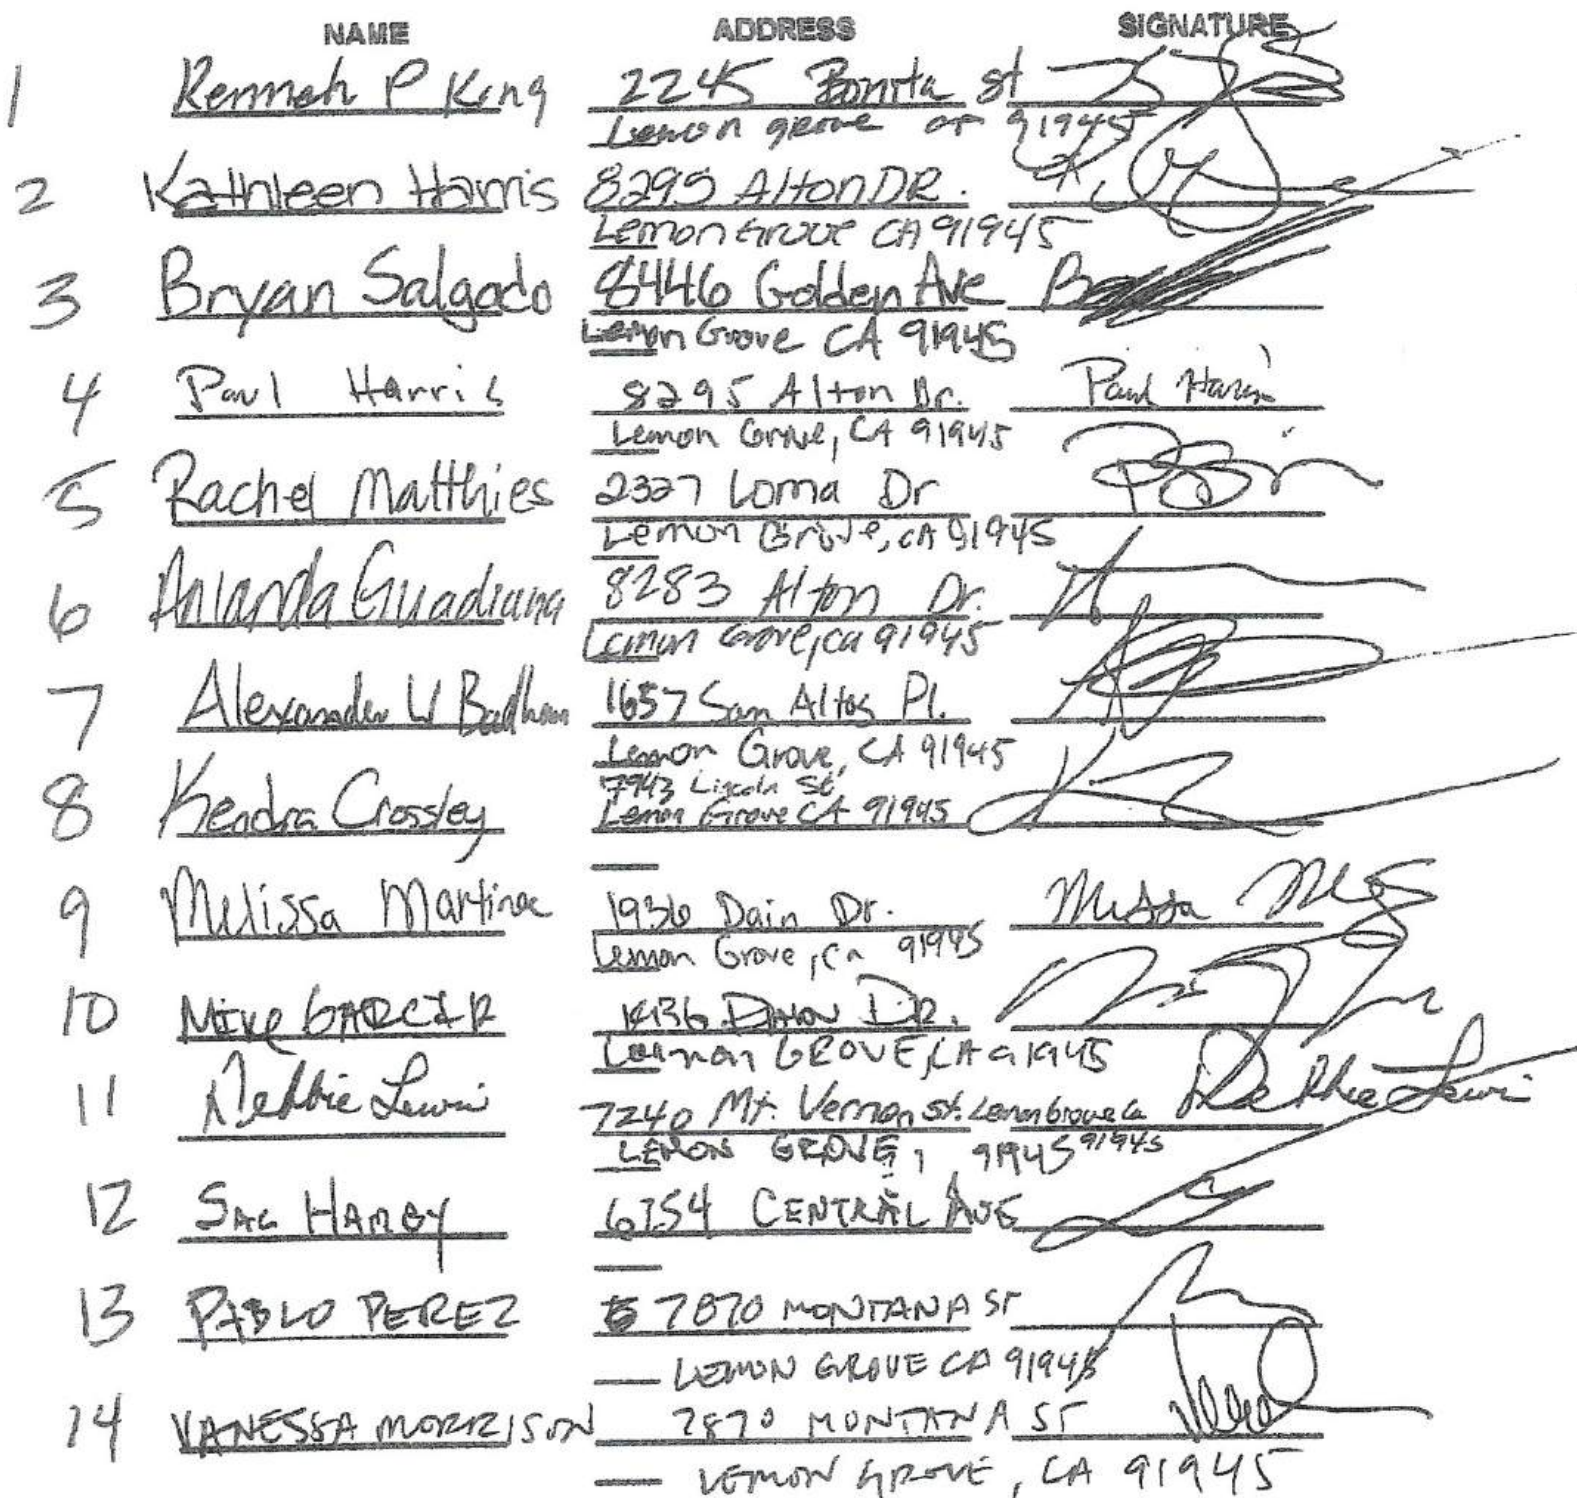 NAME ADDRESS SIGNATURE
1 Kenneth P King 2245 Bonita st
Lemon grove ca 91945
2 Kathleen Harris 8295 Alton DR.
Lemon Grove CA 91945
3 Bryan Salgado 8446 Golden Ave
Lemon Grove CA 91945
4 Paul Harris 8295 Alton Dr. Paul Harris
Lemon Grove, CA 91945
5 Rachel Matthies 2327 Loma Dr
Lemon Grove, CA 91945
6 Guadiana 8283 Alton Dr.
Lemon Grove, ca 91945
7 Alexander W 1657 San Altos Pl.
Lemon Grove, CA 91945
7943 Lincoln St
8 Kendra Crossley Lemon Grove CA 91945
9 Melissa Martinez 1936 Dain Dr. Melissa
Lemon Grove, Ca 91945
10 Mike GARCIA 1936 DR.
Lemon GROVE, CA 91945
11 Debbie Lewis 7240 Mt. Vernon st. Lemon Grove Ca Debbie Lewis
LEMON GROVE, 91945 91945
12 HAMBY CENTRAL AVE
13 PABLO PEREZ 7870 MONTANA ST
LEMON GROVE CA 91945
14 VANESSA MORRISON 7870 MONTANA ST
LEMON GROVE, CA 91945